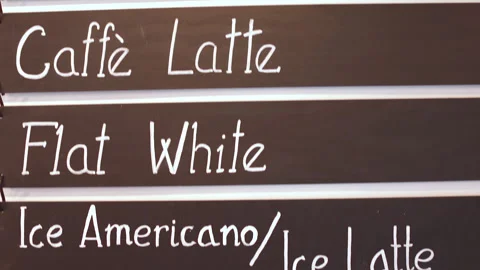 Caffè Latte
Flat White
Ice Americano/Ice Latte